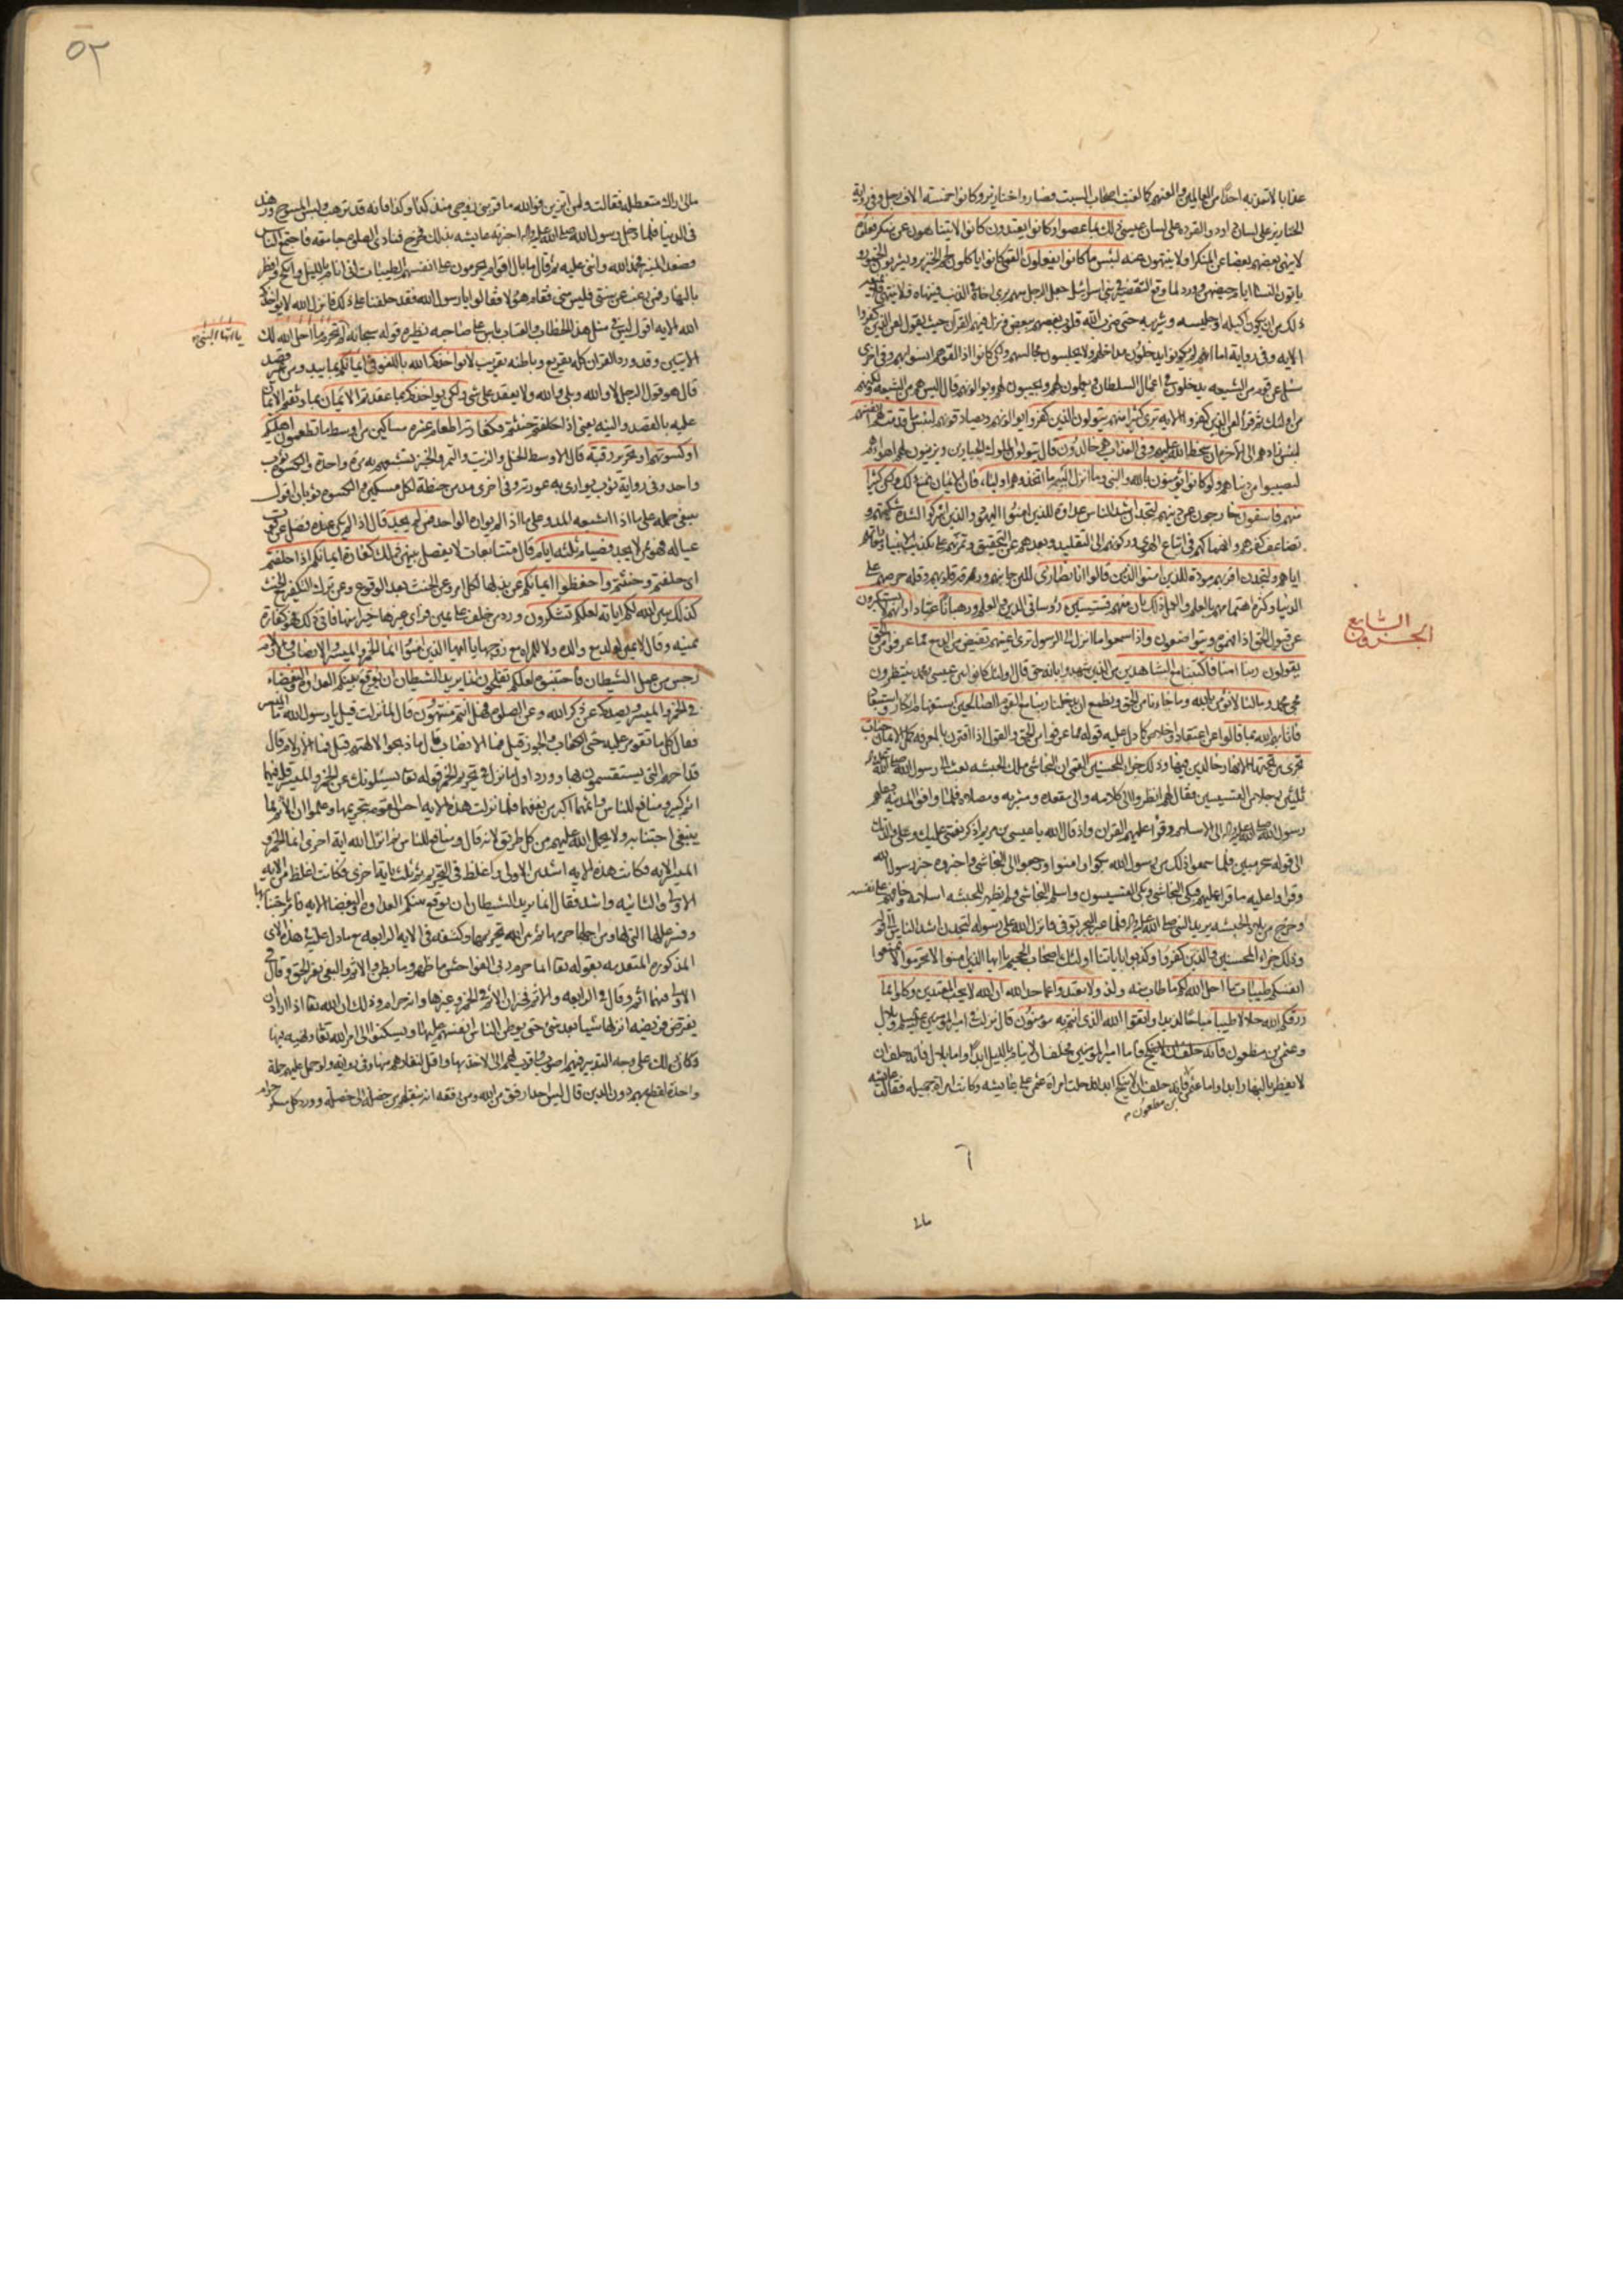 عذابا لا تعذبه احدا من العالمين والعنهم كما لعنت اصحاب السبت فصاروا خنازير وكانوا خمسة الاف رجل وفي رواية
الخنازير على لسان داود والقردة على لسان عيسى ذلك بما عصوا وكانوا يعتدون كانوا لا يتناهون عن منكر فعلوه
لا ينهى بعضهم بعضا عن المنكر او لا ينتهون عنه لبئس ما كانوا يفعلون القمي كانوا ياكلون لحم الخنزير ويشربون الخمور و
ياتون النساء ايام حيضهن وورد لما وقع التقصير في بني اسرائيل جعل الرجل منهم يرى اخاه في الذنب فينهاه فلا ينتهي فلا يمنعه
ذلك من ان يكون اكيله وجليسه وشريبه حتى ضرب الله قلوب بعضهم ببعض ونزل فيهم القرآن حيث يقول لعن الذين كفروا
الاية وفي رواية اما انهم لم يكونوا يدخلون مداخلهم ولا يجلسون مجالسهم ولكن كانوا اذا لقوهم انسوا بهم وفي اخرى
سئل عن قوم من الشيعة يدخلون في اعمال السلطان ويعملون لهم ويجبون لهم ويوالونهم قال ليس هم من الشيعة ولكنهم
من اولئك ثم قرأ لعن الذين كفروا الاية ترى كثيرا منهم يتولون الذين كفروا يوالونهم ويصادقونهم لبئس ما قدمت لهم انفسهم
لبئس زادهم الى الآخرة ان سخط الله عليهم وفي العذاب هم خالدون قال يتولون الملوك الجبارين ويزينون لهم اهواءهم
ليصيبوا من دنياهم ولو كانوا يؤمنون بالله والنبي وما انزل اليه ما اتخذوهم اولياء فان الايمان يمنع ذلك ولكن كثيرا
منهم فاسقون خارجون عن دينهم لتجدن اشد الناس عداوة للذين امنوا اليهود والذين اشركوا لشدة شكيمتهم و
تضاعف كفرهم وانهماكهم في اتباع الهوى وركونهم الى التقليد وبعدهم عن التحقيق وتمرنهم على تكذيب الانبياء ومعاداتهم
اياهم ولتجدن اقربهم مودة للذين امنوا الذين قالوا انا نصارى للين جانبهم ورقة قلوبهم وقلة حرصهم على
الدنيا وكثرة اهتمامهم بالعلم والعمل ذلك بان منهم قسيسين رؤساء في الدين والعلم ورهبانا عبادا وانهم لا يستكبرون
عن قبول الحق اذا فهموه ويتواضعون واذا سمعوا ما انزل الى الرسول ترى اعينهم تفيض من الدمع مما عرفوا من الحق
يقولون ربنا امنا فاكتبنا مع الشاهدين من الذين شهدوا بانه حق قال اولئك كانوا بين عيسى ومحمد ينتظرون
مجيء محمد وما لنا لا نؤمن بالله وما جاءنا من الحق ونطمع ان يدخلنا ربنا مع القوم الصالحين استفهام انكار واستبعاد
فاثابهم الله بما قالوا عن اعتقاد واخلاص كما دل عليه قوله مما عرفوا من الحق والقول اذا اقترن بالمعرفة كمل الايمان جنات
تجري من تحتها الانهار خالدين فيها وذلك جزاء المحسنين القمي ان النجاشي ملك الحبشة بعث الى رسول الله صلى الله عليه واله
ثلثين رجلا من القسيسين فقال لهم انظروا الى كلامه والى مقعده ومشربه ومصلاه فلما وافوا المدينة دعاهم
رسول الله صلى الله عليه واله الى الاسلام وقرأ عليهم القران واذ قال الله يا عيسى بن مريم اذكر نعمتي عليك وعلى والدتك
الى قوله سحر مبين فلما سمعوا ذلك من رسول الله بكوا وامنوا ورجعوا الى النجاشي واخبروه خبر رسول الله
وقرأوا عليه ما قرأ عليهم فبكى النجاشي وبكى القسيسون واسلم النجاشي ولم يظهر للحبشة اسلامه وخافهم على نفسه
وخرج من بلاد الحبشة يريد النبي صلى الله عليه واله فلما عبر البحر توفي فانزل الله على رسوله لتجدن اشد الناس الى قوله
وذلك جزاء المحسنين والذين كفروا وكذبوا باياتنا اولئك اصحاب الجحيم يا ايها الذين امنوا لا تحرموا لا تمنعوا
انفسكم طيبات ما احل الله لكم ما طاب منه ولذ ولا تعتدوا عما حد الله ان الله لا يحب المعتدين وكلوا مما
رزقكم الله حلالا طيبا مباحا لذيذا واتقوا الله الذي انتم به مؤمنون قال نزلت في امير المؤمنين عليه السلم وبلال
وعثمن بن مظعون فاما امير المؤمنين فحلف ان لا ينام بالليل ابدا واما بلال فانه حلف ان
لا يفطر بالنهار ابدا واما عثمن بن مظعون فانه حلف ان لا ينكح ابدا فدخلت امراة عثمن على عايشه وكانت امراة جميله فقالت عايشه
الجزو السابع
مالي اراك متعطلة فقالت ولمن اتزين فوالله ما قربني زوجي منذ كذا وكذا فانه قد ترهب ولبس المسوح وزهد
في الدنيا فلما دخل رسول الله صلى الله عليه واله اخبرته عايشه بذلك فخرج فنادى الصلوة جامعة فاجتمع الناس
وصعد المنبر فحمد الله واثنى عليه ثم قال ما بال اقوام يحرمون على انفسهم الطيبات اني انام بالليل وانكح وافطر
بالنهار فمن رغب عن سنتي فليس مني فقام هؤلاء فقالوا يا رسول الله فقد حلفنا على ذلك فانزل الله لا يؤاخذكم
الله الاية اقول ليس في مثل هذا الخطاب والعتاب باس على صاحبه نظيره قوله سبحانه لم تحرم ما احل الله لك
يا ايها النبي
الايتين وقد ورد القران كله تقريع وباطنه تقريب لا يؤاخذكم الله باللغو في ايمانكم بما يبدو من غير قصد
قال هو قول الرجل لا والله وبلى والله ولا يعقد على شيء ولكن يؤاخذكم بما عقدتم الايمان بما وثقتم الايمان
عليه بالقصد والنية يعني اذا حلفتم حنثتم فكفارته اطعام عشرة مساكين من اوسط ما تطعمون اهليكم
او كسوتهم او تحرير رقبة قال الاوسط الخل والزيت والتمر والخبز تشبعهم به مرة واحدة والكسوة ثوب
واحد وفي رواية ثوب يواري به عورته وفي اخرى مد من حنطة لكل مسكين والكسوة ثوبان اقول
ينبغي حمله على ما اذا لم يواره الواحد فمن لم يجد قال اذا لم يكن عنده فضل عن قوت
عياله فهو ممن لا يجد فصيام ثلثة ايام قال متتابعات لا يفصل بينهن ذلك كفارة ايمانكم اذا حلفتم
اي حلفتم وحنثتم واحفظوا ايمانكم عن بذلها لكل امر وعن الحنث بعد الوقوع وعن ترك التكفير للحنث
كذلك يبين الله لكم اياته لعلكم تشكرون وورد من حلف على يمين فراى غيرها خيرا منها فاتى ذلك فهو كفارة
يمينه وقال لا يمين لولد مع والده ولا للمراة مع زوجها يا ايها الذين امنوا انما الخمر والميسر والانصاب والازلام
رجس من عمل الشيطان فاجتنبوه لعلكم تفلحون انما يريد الشيطان ان يوقع بينكم العداوة والبغضاء
في الخمر والميسر ويصدكم عن ذكر الله وعن الصلوة فهل انتم منتهون قال لما نزلت قيل يا رسول الله ما الميسر
فقال كل ما تقومر عليه حتى الكعاب والجوز قيل فما الانصاب قال ما ذبحوا لالهتهم قيل فما الازلام قال
قداحهم التي يستقسمون بها وورد اول ما نزل في تحريم الخمر قوله تعا يسئلونك عن الخمر والميسر قل فيهما
اثم كبير ومنافع للناس واثمهما اكبر من نفعهما فلما نزلت هذه الاية احس القوم بتحريمها وعلموا ان الاثم مما
ينبغي اجتنابه ولا يحمل الله عليهم من كل طريق لانه قال ومنافع للناس ثم انزل الله اية اخرى انما الخمر و
الميسر الاية فكانت هذه الاية اشد من الاولى واغلظ في التحريم ثم ثلث باية اخرى فكانت اغلظ من الاية
الاولى والثانية واشد فقال انما يريد الشيطان ان يوقع بينكم العداوة والبغضاء الاية فامر باجتنابها
وفسر عللها التي لها ومن اجلها حرمها ثم بين الله تحريمها وكشفه في الاية الرابعة مع ما دل عليه في هذه الاي
المذكورة المتقدمة بقوله تعا انما حرم ربي الفواحش ما ظهر منها وما بطن والاثم والبغي بغير الحق وقال في
الاولى فيهما اثم وقال في الرابعة والاثم فخبر ان الاثم في الخمر وغيرها وانه حرام وذلك ان الله تعا اذا اراد ان
يفترض فريضة انزلها شيئا بعد شيء حتى يوطن الناس انفسهم عليها ويسكنوا الى امر الله تعا ونهيه فيها
وكان ذلك على وجه التدبير فيهم اصوب واقرب لهم الى الاخذ بها واقل لنفارهم منها وفي رواية ولو حمل عليهم جملة
واحدة لقطع بهم دون الدين قال ليس احد ارفق من الله ومن رفقه انه ينقلهم من خصلة الى خصلة وورد كل مسكر حرام